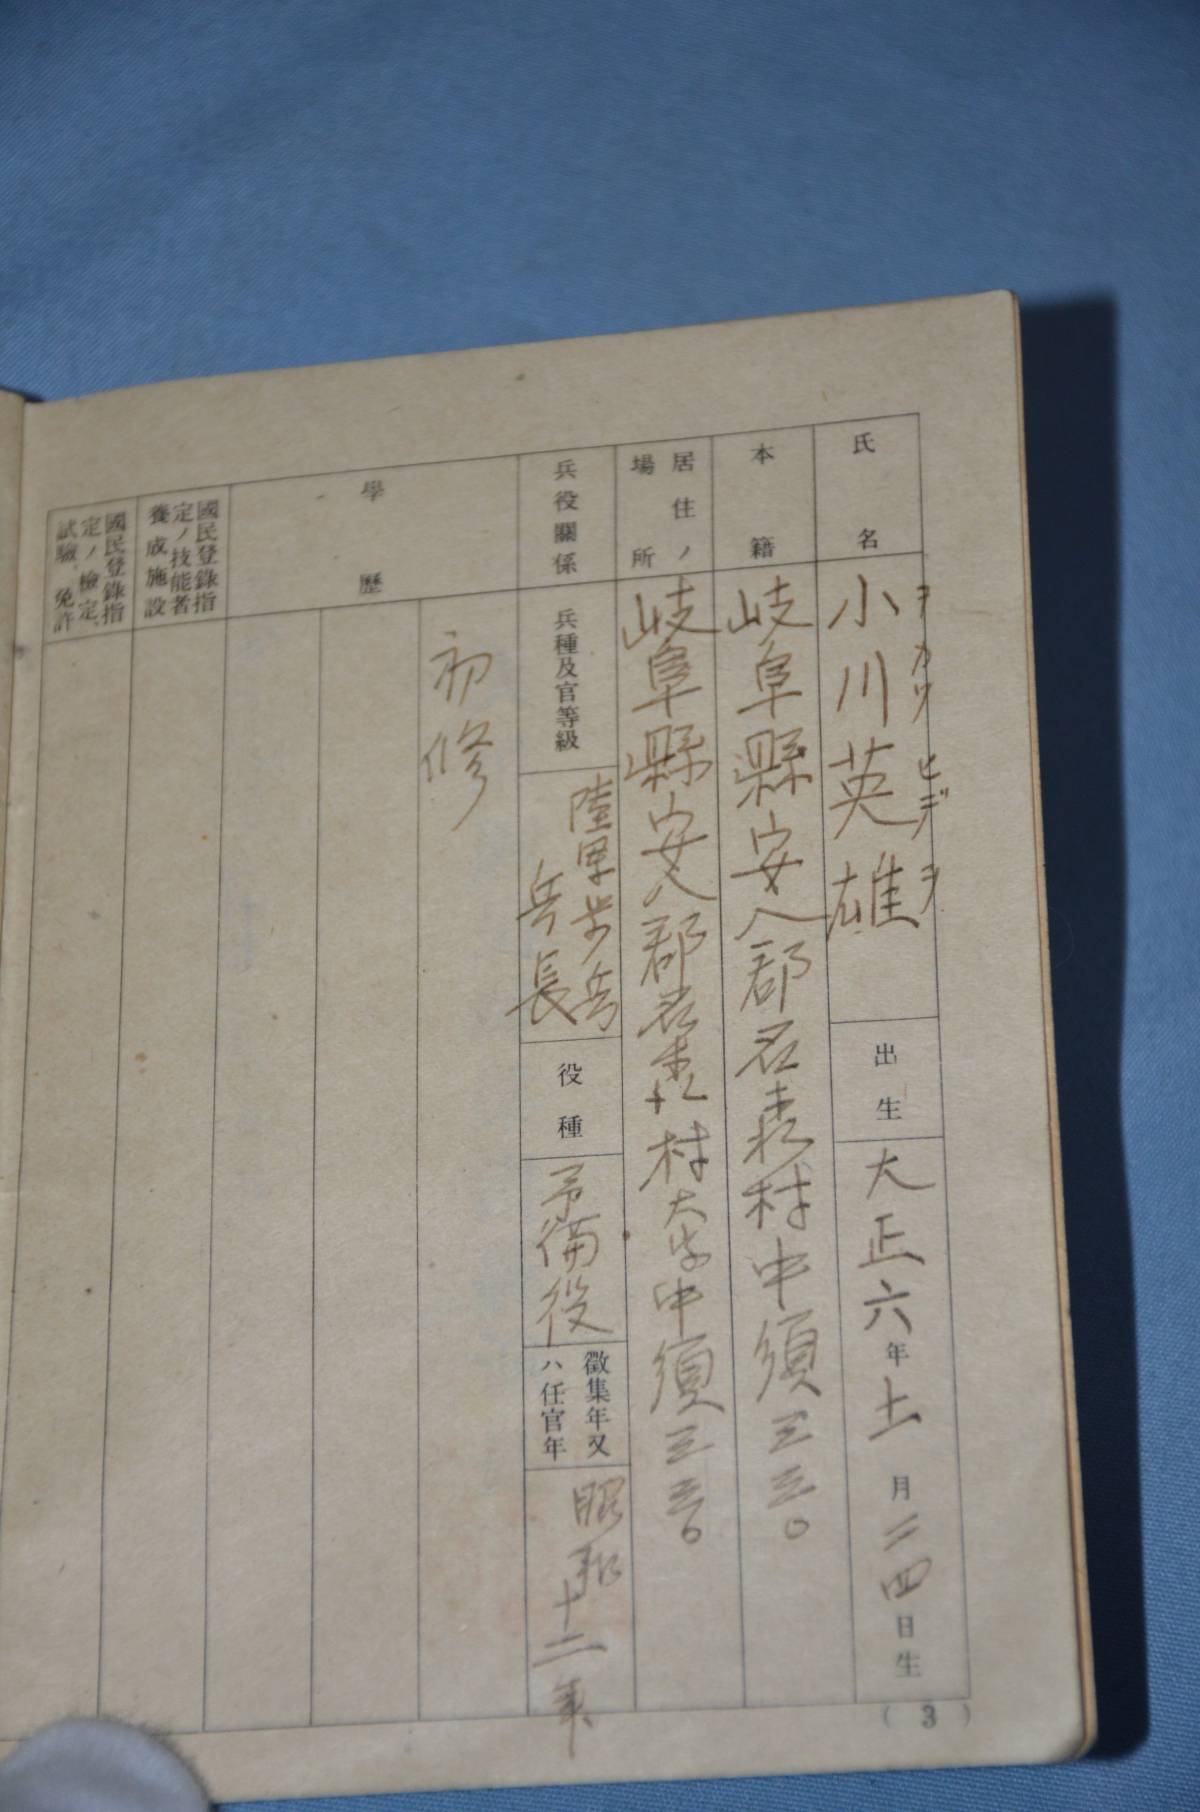 氏名
小川英雄
ヲカワ ヒデヲ
出生
大正六年十一月二四日生
本籍
岐阜縣安八郡名森村中須三三〇
居住ノ場所
岐阜縣安八郡名森村大字中須三三〇
兵役關係
兵種及官等級
陸軍歩兵
兵長
役種
予備役
徵集年又
ハ任官年
昭和十二年
學歷
初修
國民登錄指
定ノ技能者
養成施設
國民登錄指
定ノ檢定、
試驗、免許
(3)